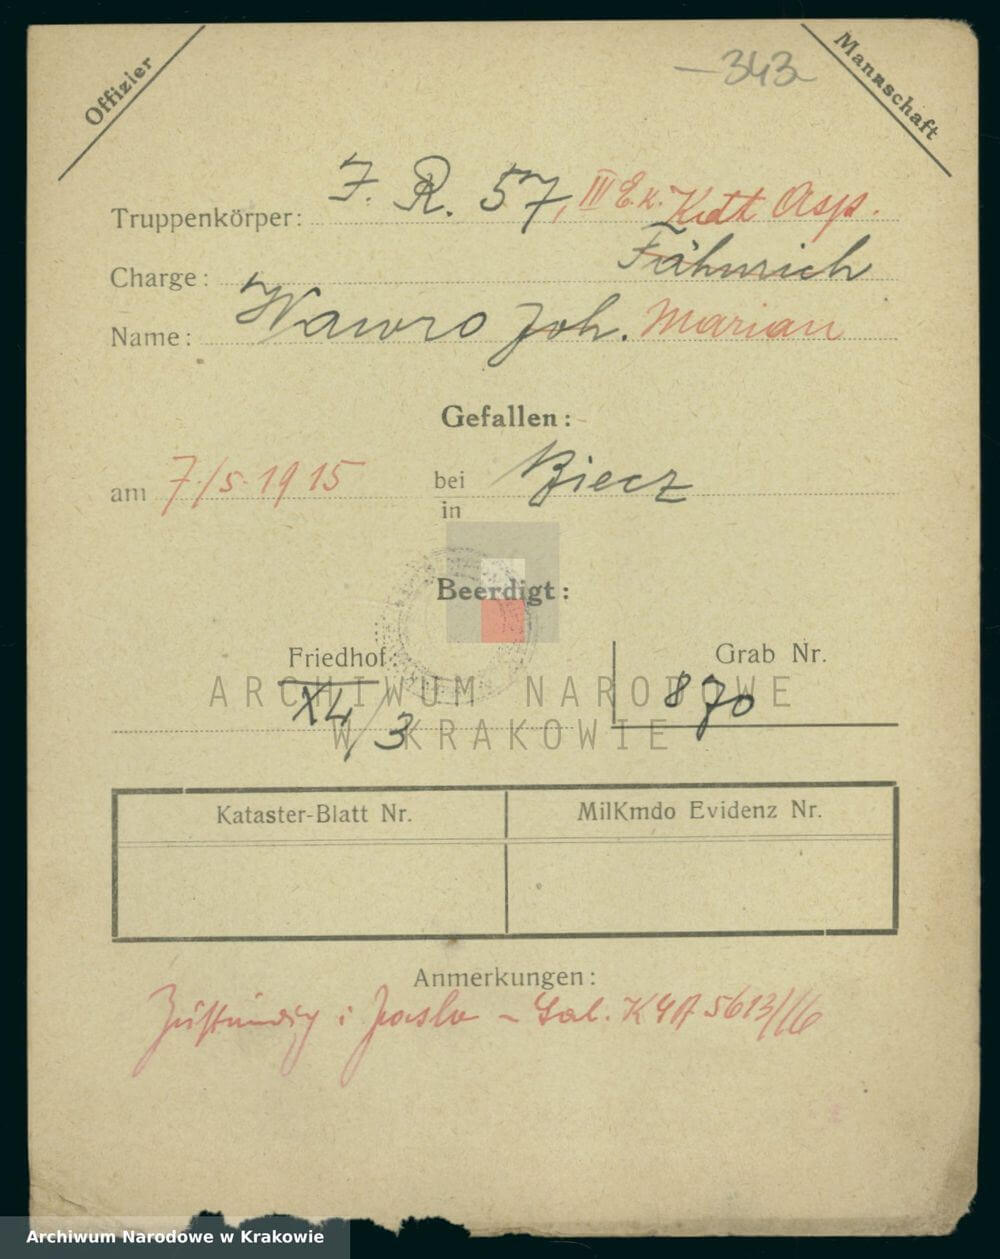 Offizier
-343-
Mannschaft
Truppenkörper: I. R. 57, III E.k. Kdt Asp.
Charge: Fähnrich
Name: Wawro Joh. Marian
Gefallen:
am 7/5 1915 bei Biecz
in
Beerdigt:
Friedhof: Grab Nr.
XL/3 870
ARCHIWUM NARODOWE
W KRAKOWIE
Kataster-Blatt Nr. MilKmdo Evidenz Nr.
Anmerkungen:
Zuständig i Jaslo - Gal. 5613/16
Archiwum Narodowe w Krakowie